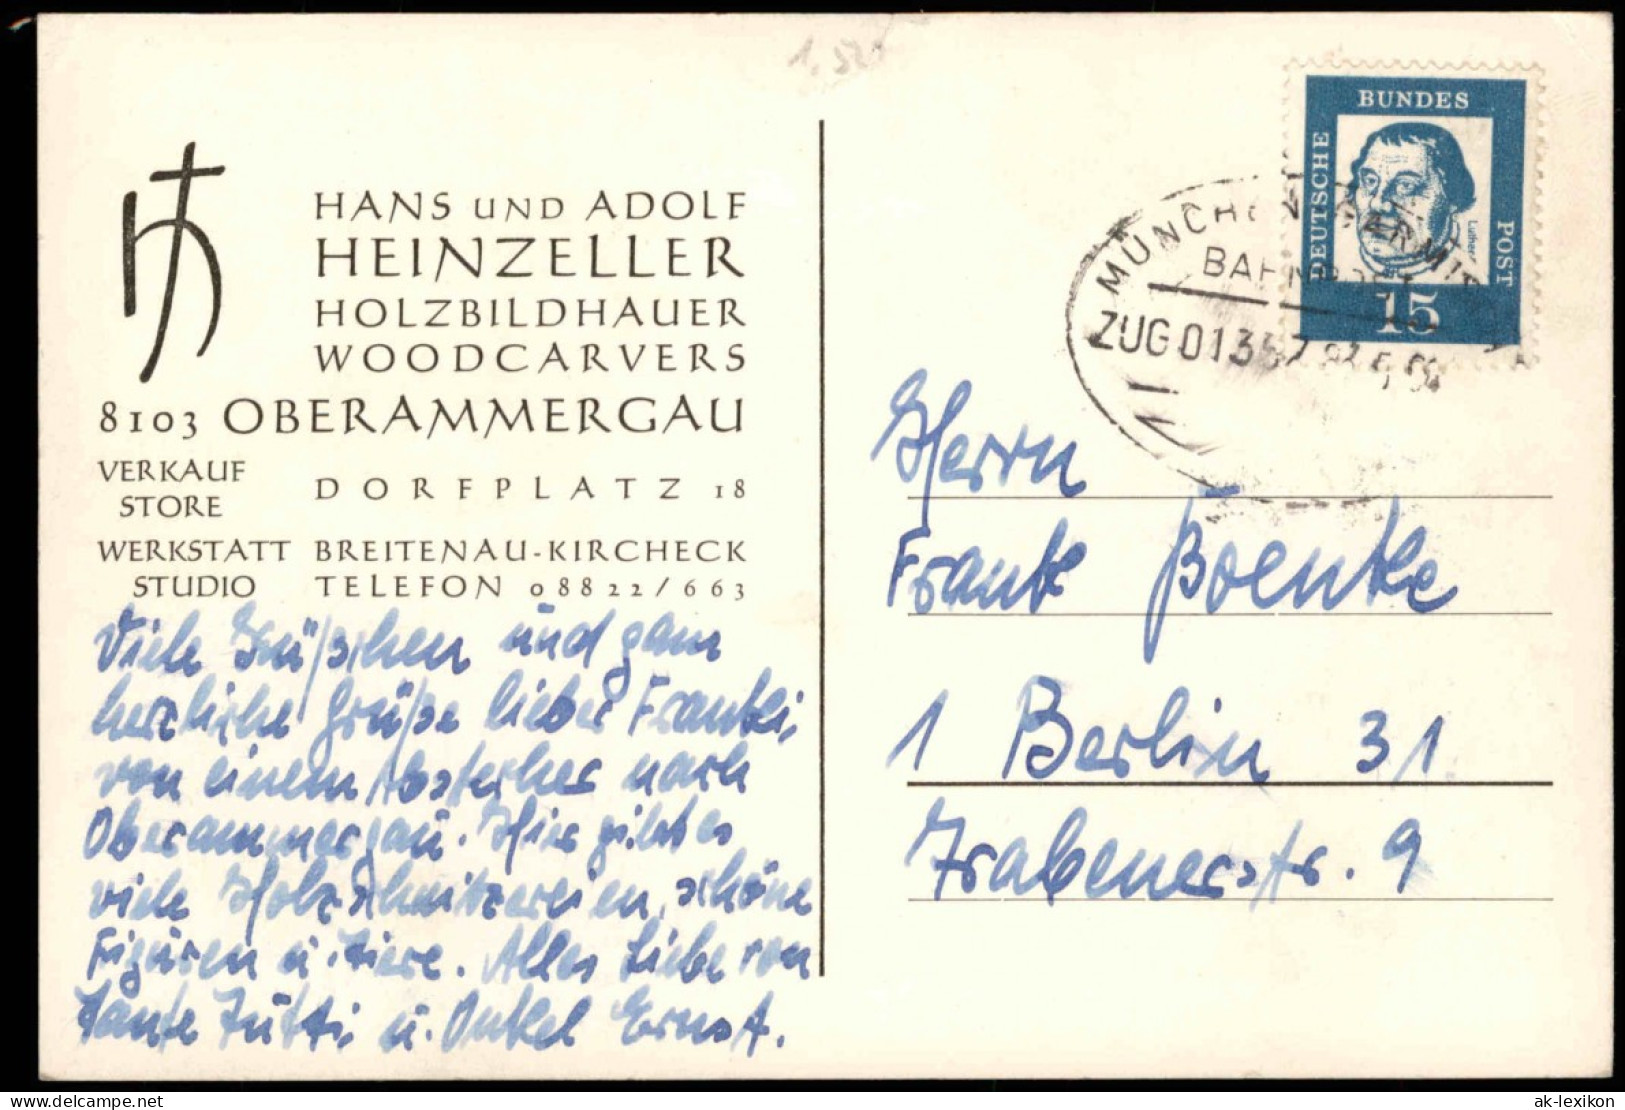 HANS UND ADOLF
HEINZELLER
HOLZBILDHAUER
WOODCARVERS
8103 OBERAMMERGAU
VERKAUF
STORE
DORFPLATZ 18
WERKSTATT BREITENAU-KIRCHECK
STUDIO TELEFON 08822/663
Viele Küsschen und ganz
herzliche Grüße lieber Frankli,
von einem Abstecher nach
Oberammergau. Hier gibt es
viele Holzschnitzereien, schöne
Figuren u. Tiere. Alles Liebe von
Tante Jutti u. Onkel Ernst.
DEUTSCHE
BUNDES
POST
Luther
15
MÜNCHEN GARMISCH
BAHNPOST
ZUG 01357
Herrn
Frank Boenke
1 Berlin 31
Trabenerstr. 9
delcampe.net
ak-lexikon